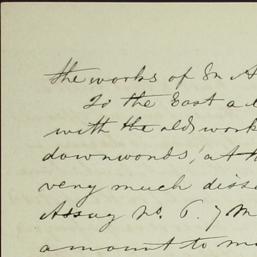 the works of Sn A
To the East a
with the old work
downwards, at th
very much diss
Assay No. 6. 7 M
amount to mo